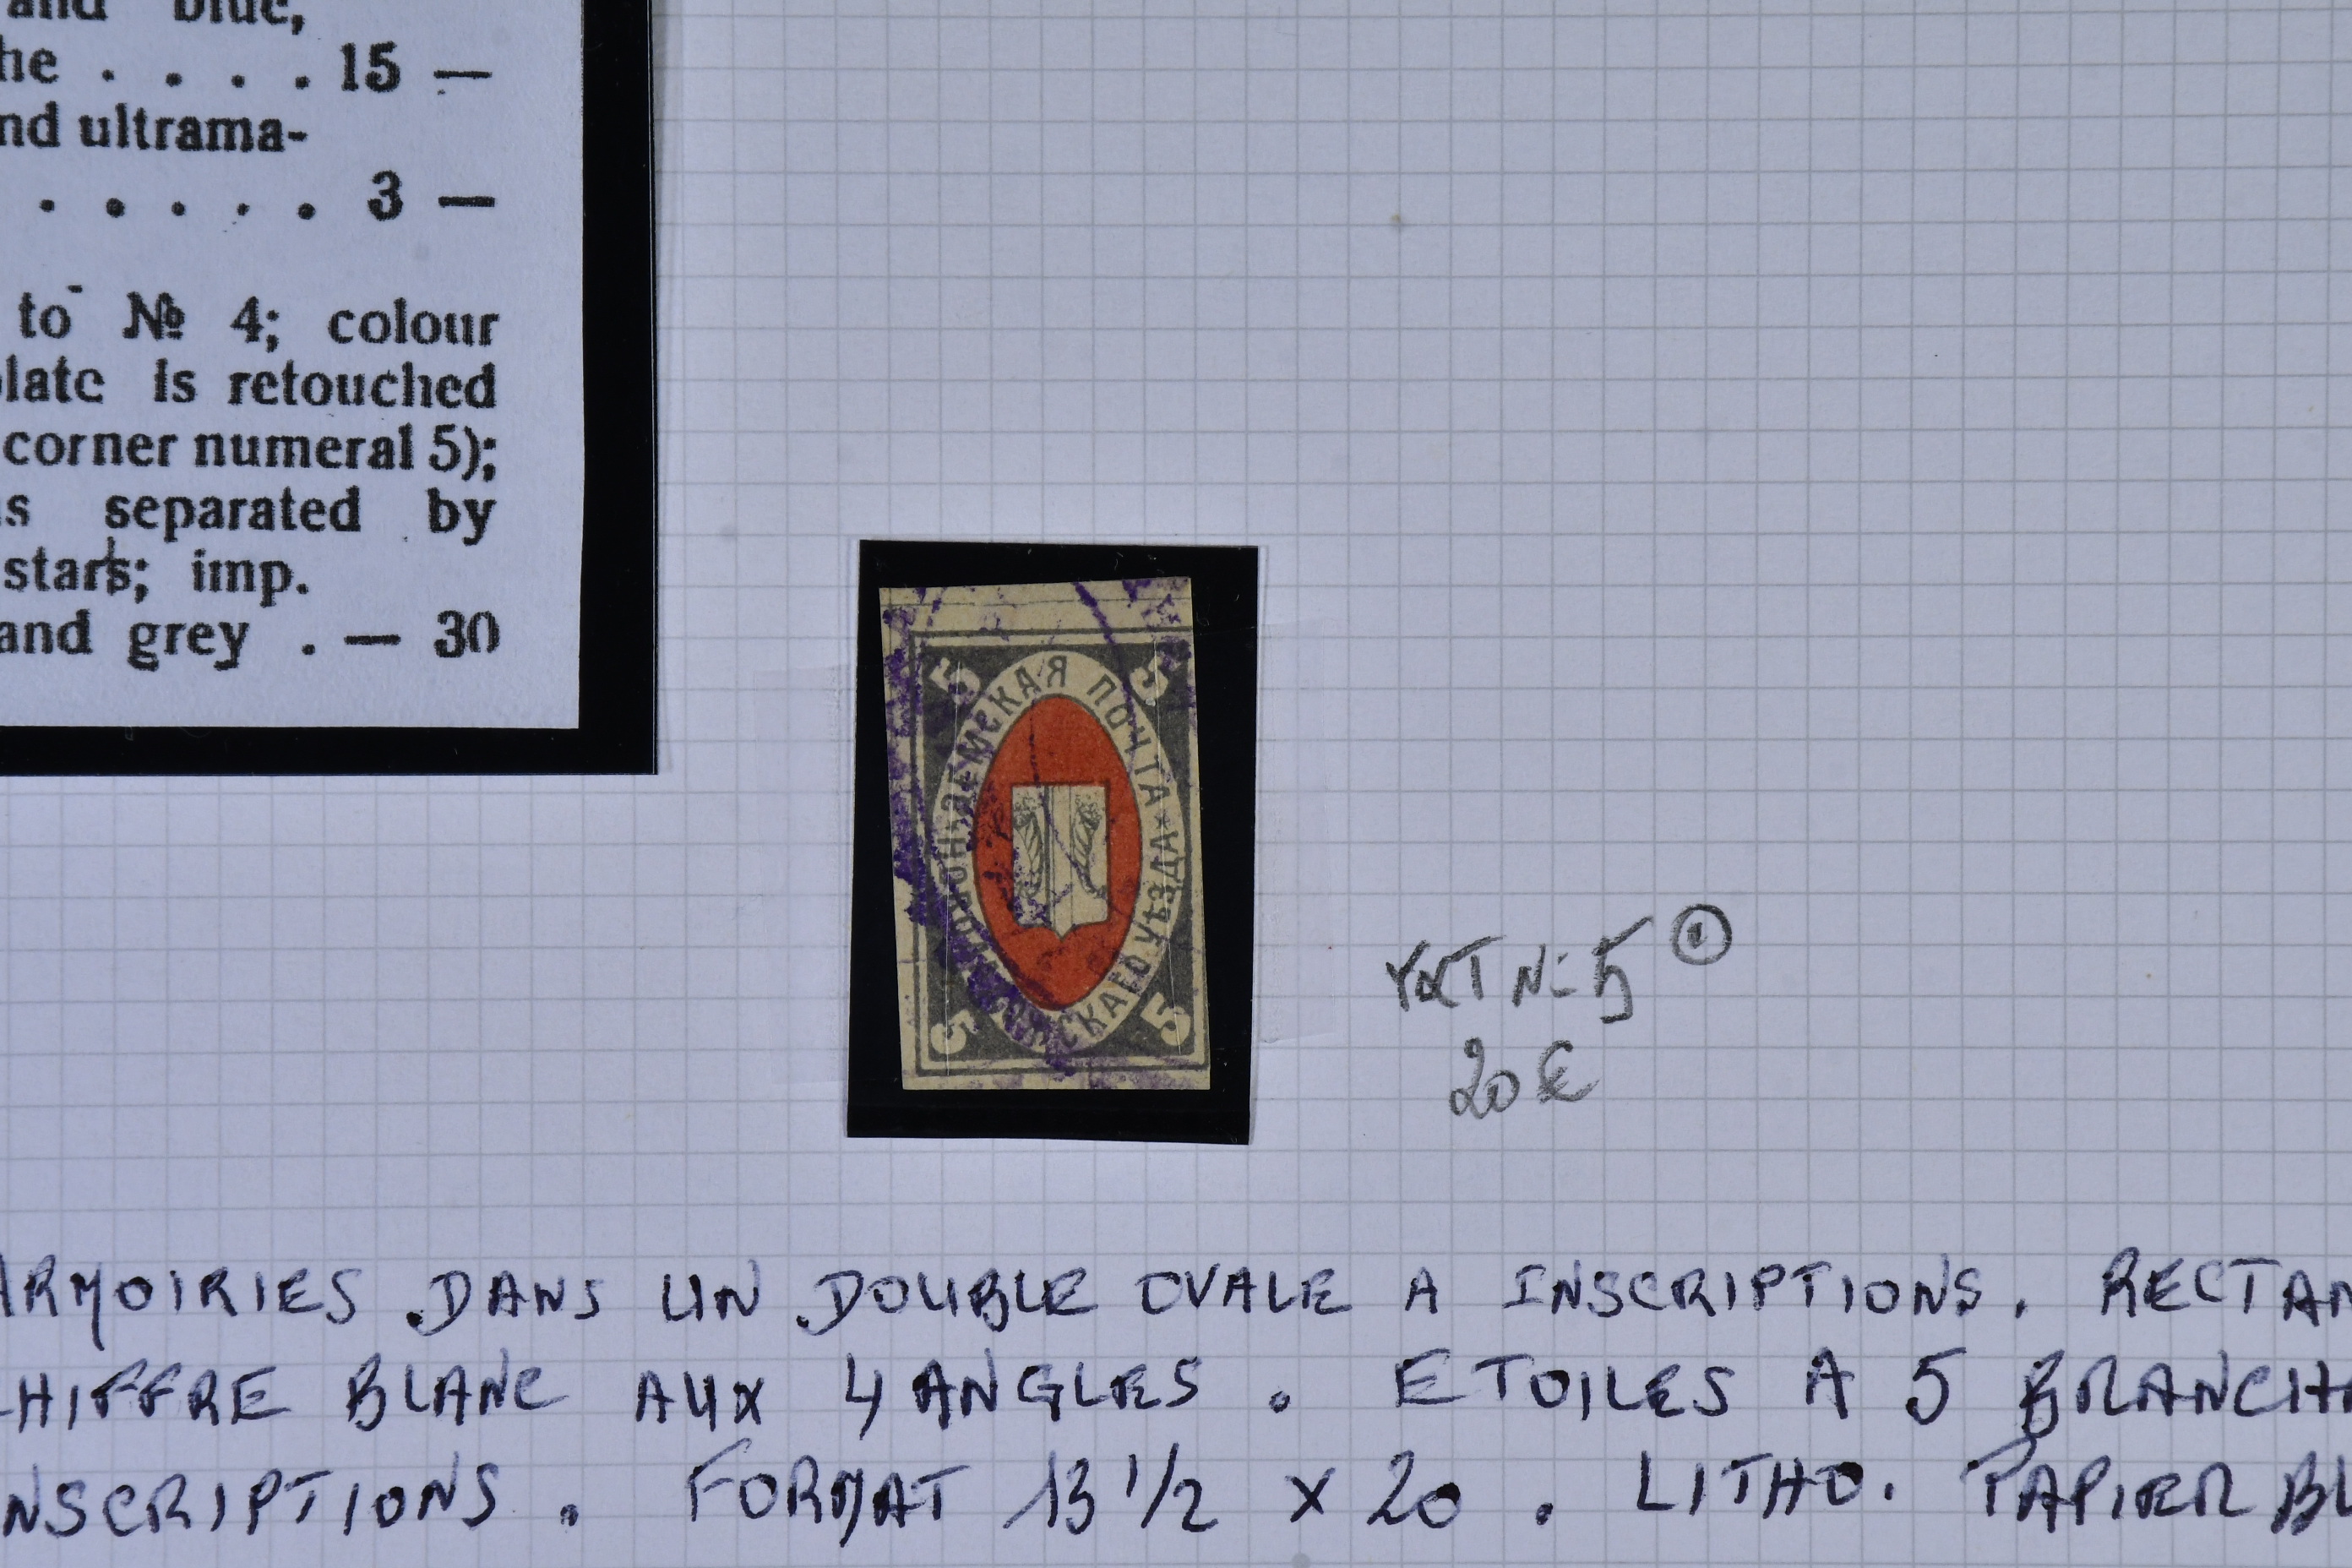 and blue,
he . . . . 15 —
nd ultrama-
. . . . . 3 —
to № 4; colour
plate is retouched
corner numeral 5);
s separated by
stars; imp.
and grey . — 30
5 5
ЗЕМСКАЯ ПОЧТА
5 5
Y&T N= 5
20 €
ARMOIRIES DANS UN DOUBLE OVALE A INSCRIPTIONS. RECTAN
CHIFFRE BLANC AUX 4 ANGLES. ETOILES A 5 BRANCH
NSCRIPTIONS. FORMAT 13 1/2 x 20. LITHO. PAPIER BL